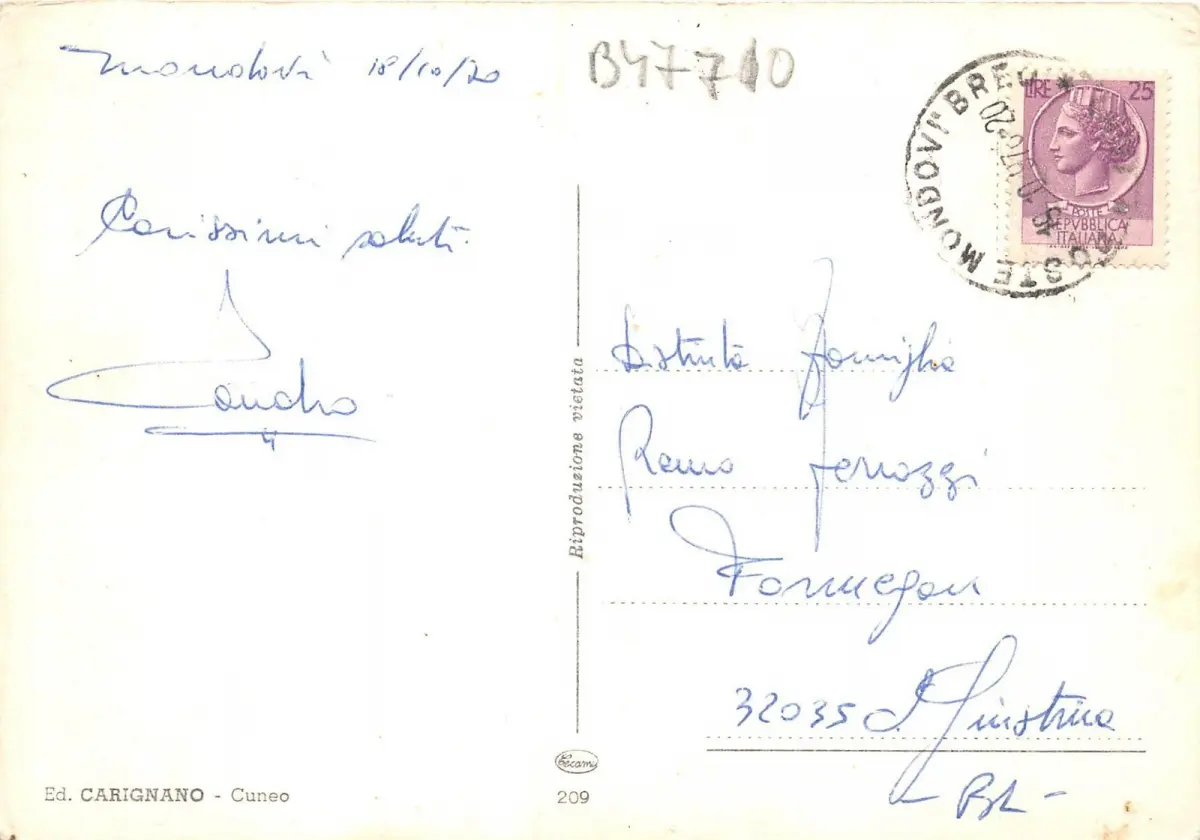 Mondovì 18/10/70
B47710
Carissimi saluti.
Sandro
LIRE 25
POSTE
REPVBBLICA
ITALIANA
POSTE MONDOVI' BREO *
Distinta Famiglia
Remo Ferrazzi
Formegan
32035 S. Giustina
- BL -
Riproduzione vietata
Cecami
Ed. CARIGNANO - Cuneo
209